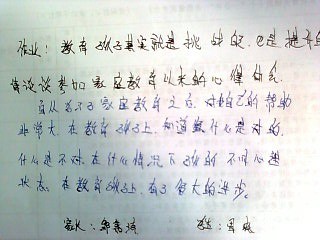 作业: 教育孩子其实就是挑战自己是提升自
请谈谈参加家庭教育以来的心得体会
自从学习了家庭教育之后,对自己的帮助
非常大,在教育孩子上,知道些什么是对的,
什么是不对,在什么情况下孩子的不同心理
状态,在教育孩子上,有了很大的进步。
家长: